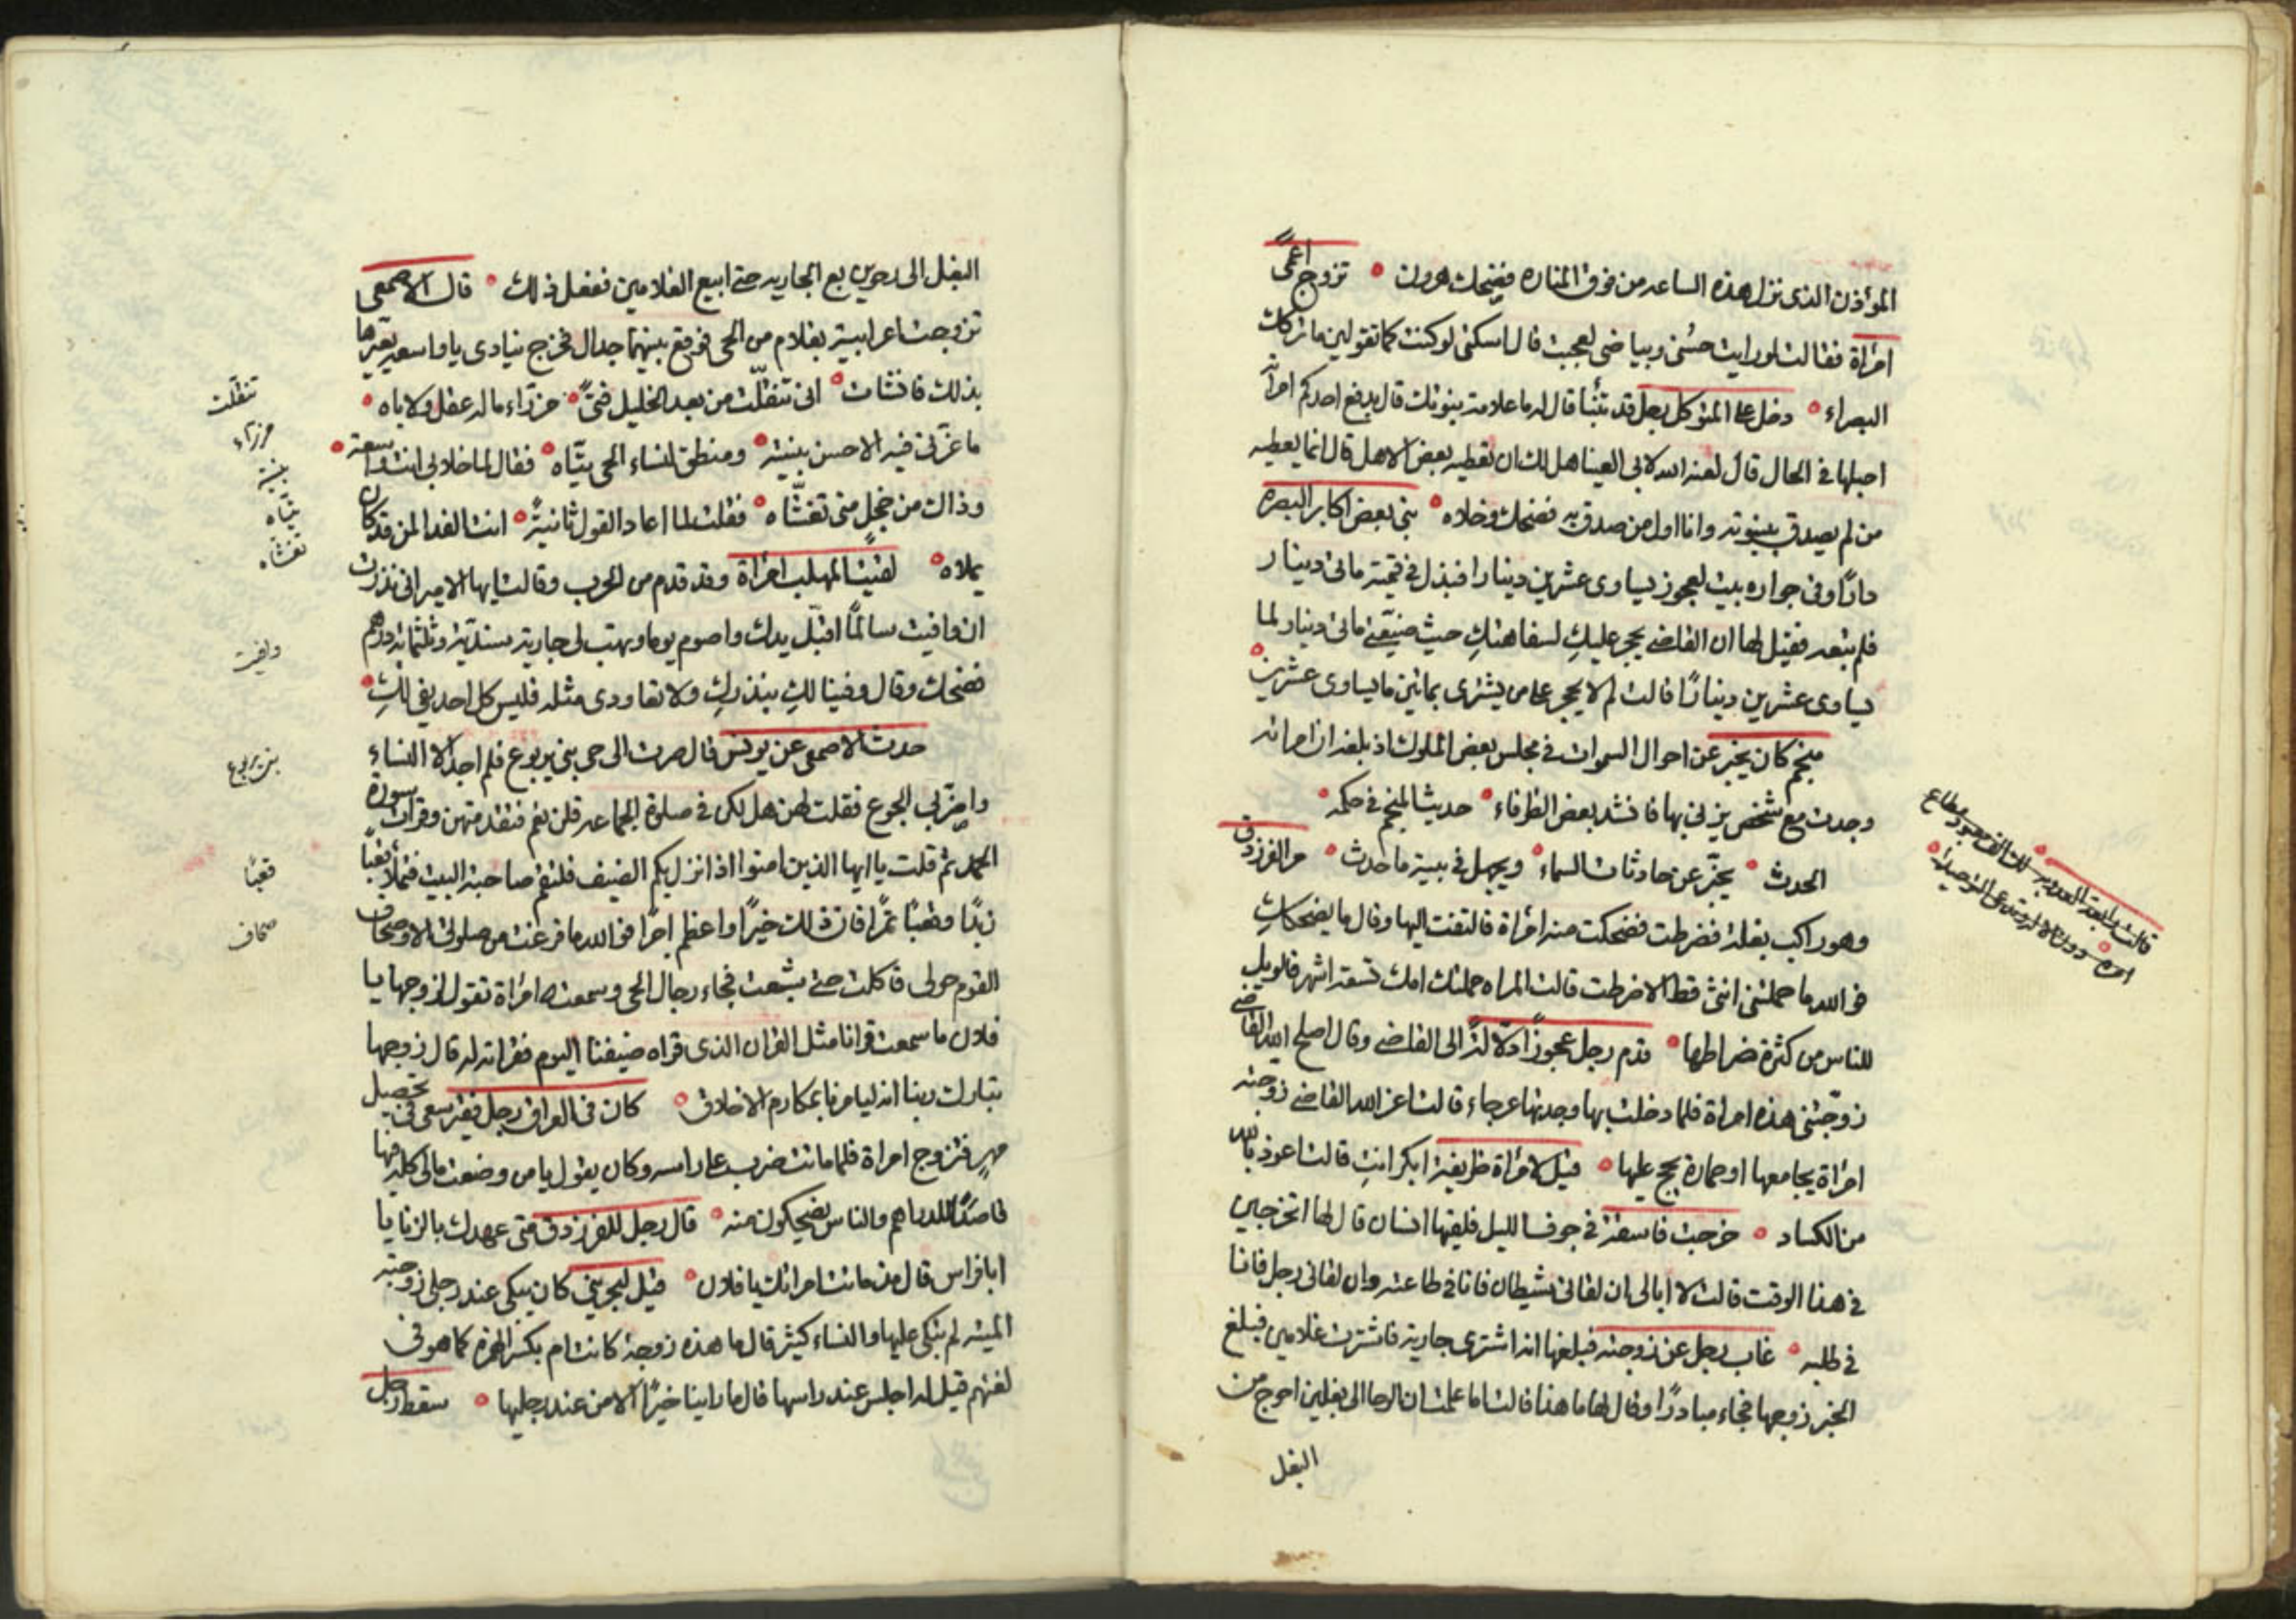 المؤذن الذى نزل هذه الساعه من فوق المناره فضحك هرون ٥ تزوج اعمى
امراة فقالت لو رايت حسنى وبياضى لعجبت قال اسكتى لو كنت كما تقولين ما تركك
البصراء ٥ دخل على المتوكل رجل قد تنبأ قال له ما علامة بنوتك قال يدفع احدكم امراته
احبلها فى الحال قال لعنه الله لابى العينا هل لك ان تعطيه بعض الاهل قال انما يعطيه
من لم يصدق بنبوته وانا اول من صدق به فضحك وخلاه ٥ بنى بعض اكابر البصره
دارًا وفى جواره بيت لعجوز يساوى عشرين دينارا فبذل فى قيمته مائى دينار
فلم تبعه فقيل لها ان القاضے يحجر عليكِ لسفاهتكِ حيث ضيعتے مائى دينار لما
يساوى عشرين دينارًا قالت لم لا يحجر على من يشترى بمائتين ما يساوى عشرين ٥
منجم كان يخبر عن احوال السموات فى مجلس بعض الملوك اذ بلغه ان امراته
وجدت مع شخص يزنى بها فانشد بعض الظرفاء ٥ حديث المنجم فى حكمه ٥
الحدث ٥ يخبّر عن حادثات السماء ٥ ويجهل فى بيته ما حدث ٥ مر الفرزدق
وهو راكب بغلة فضرطت فضحكت منه امراة فالتفت اليها وقال ما يضحككِ
فوالله ما حملتنى انثى قط الا ضرطت قالت المراه حملتك امك تسعة اشهر فالويل
للناس من كثرة ضراطها ٥ قدم رجل عجوزًا دلالة الى القاضے وقال اصلح الله القاضے
زوّجتنى هذه امراة فلما دخلت بها وجدتها عرجاء قالت اعز الله القاضے زوجته
امراة يجامعها او حمارة يحج عليها ٥ قيل لامراة ظريفة ابكر انتِ قالت اعوذ بالله
من الكساد ٥ خرجت فاسقة فى جوف الليل فلقيها انسان قال لها اتخرجين
فى هذا الوقت قالت لا ابالى ان لقانى شيطان فانا فى طاعته وان لقانى رجل فانا
فى طلبه ٥ غاب رجل عن زوجته فبلغها انه اشترى جارية فاشترت غلامين فبلغ
الخبر زوجها فجاء مبادرًا وقال لها ما هذا قالت اما علمت ان الرحا الى بغلين احوج من
البغل
قالت رابعة العدوية
البغل الى رحوين بع الجاريه حتے ابيع الغلامين ففعل ذلك ٥ قال الاصمعى
تزوجت اعرابية بغلام من الحى فوقع بينهما جدال فخرج ينادى يا واسعه يعيّرها
بذلك فانشات ٥ انى تنقلّت من بعد الخليل فتىً ٥ مرزّاء ماله عقل ولا باه ٥
ما غرّنى فيه الا حسن بنيته ٥ ومنطق لنساء الحى تيّاه ٥ فقال لما خلا بى انت واسعة ٥
وذاك من خجل منى تغشّاه ٥ فقلت لما اعاد القول ثانيةً ٥ انت الفدا لمن قد كان
يملاه ٥ لقيت المهلب امراة وقد قدم من الحرب وقالت ايها الامير انى نذرت
ان وافيت سالمًا اقبّل يدك واصوم يوما وتهب لى جارية سندية وثلثمائة درهم
فضحك وقال وفينا لكِ بنذركِ ولا تعاودى مثله فليس كل احد يفى لكِ ٥
حدث الاصمعى عن يونس قال صرت الى حى بنى يربوع فلم اجد الا النساء
واضرّ بى الجوع فقلت لهن هل لكن فى صلوة الجماعه قلن نعم فتقدمتهن وقرات سورة
الحمد ثم قلت يا ايها الذين امنوا اذا نزل بكم الضيف فلتقم صاحبة البيت فتملأ قعباً
زبدًا وقعبًا تمرًا فان ذلك خيرًا واعظم اجرًا فوالله ما فرغت من صلوتى الا وصحاف
القوم حولى فاكلت حتے شبعت فجاء رجال الحى وسمعت امراة تقول لزوجها يا
فلان ما سمعت قرانا مثل القران الذى قراه ضيفنا اليوم فقراته له قال زوجها
تبارك ربنا انه ليامرنا بمكارم الاخلاق ٥ كان فى العراق رجل فقير سعى فى تحصيل
مهر فتزوج امراة فلما ماتت ضرب على راسه وكان يقول يا من وضعت مالى كله فيها
قاصدًا للدراهم والناس يضحكون منه ٥ قال رجل للفرزدق متى عهدك بالزنا يا
ابا فراس قال منذ ماتت امراتك يا فلان ٥ قيل لبجينى كان يبكى عند رجلى زوجته
الميته لم تبكى عليها والنساء كثير قال ما هذه زوجة كانت ام بكسر الهمزة كما هو فى
لغتهم قيل له اجلس عند راسها قال ما راينا خيرًا الا من عند رجليها ٥ سقط رجل
تنقلت
مرزاء
بنيته
تياه
تغشاه
وفيت
بنى يربوع
قعبا
صحاف